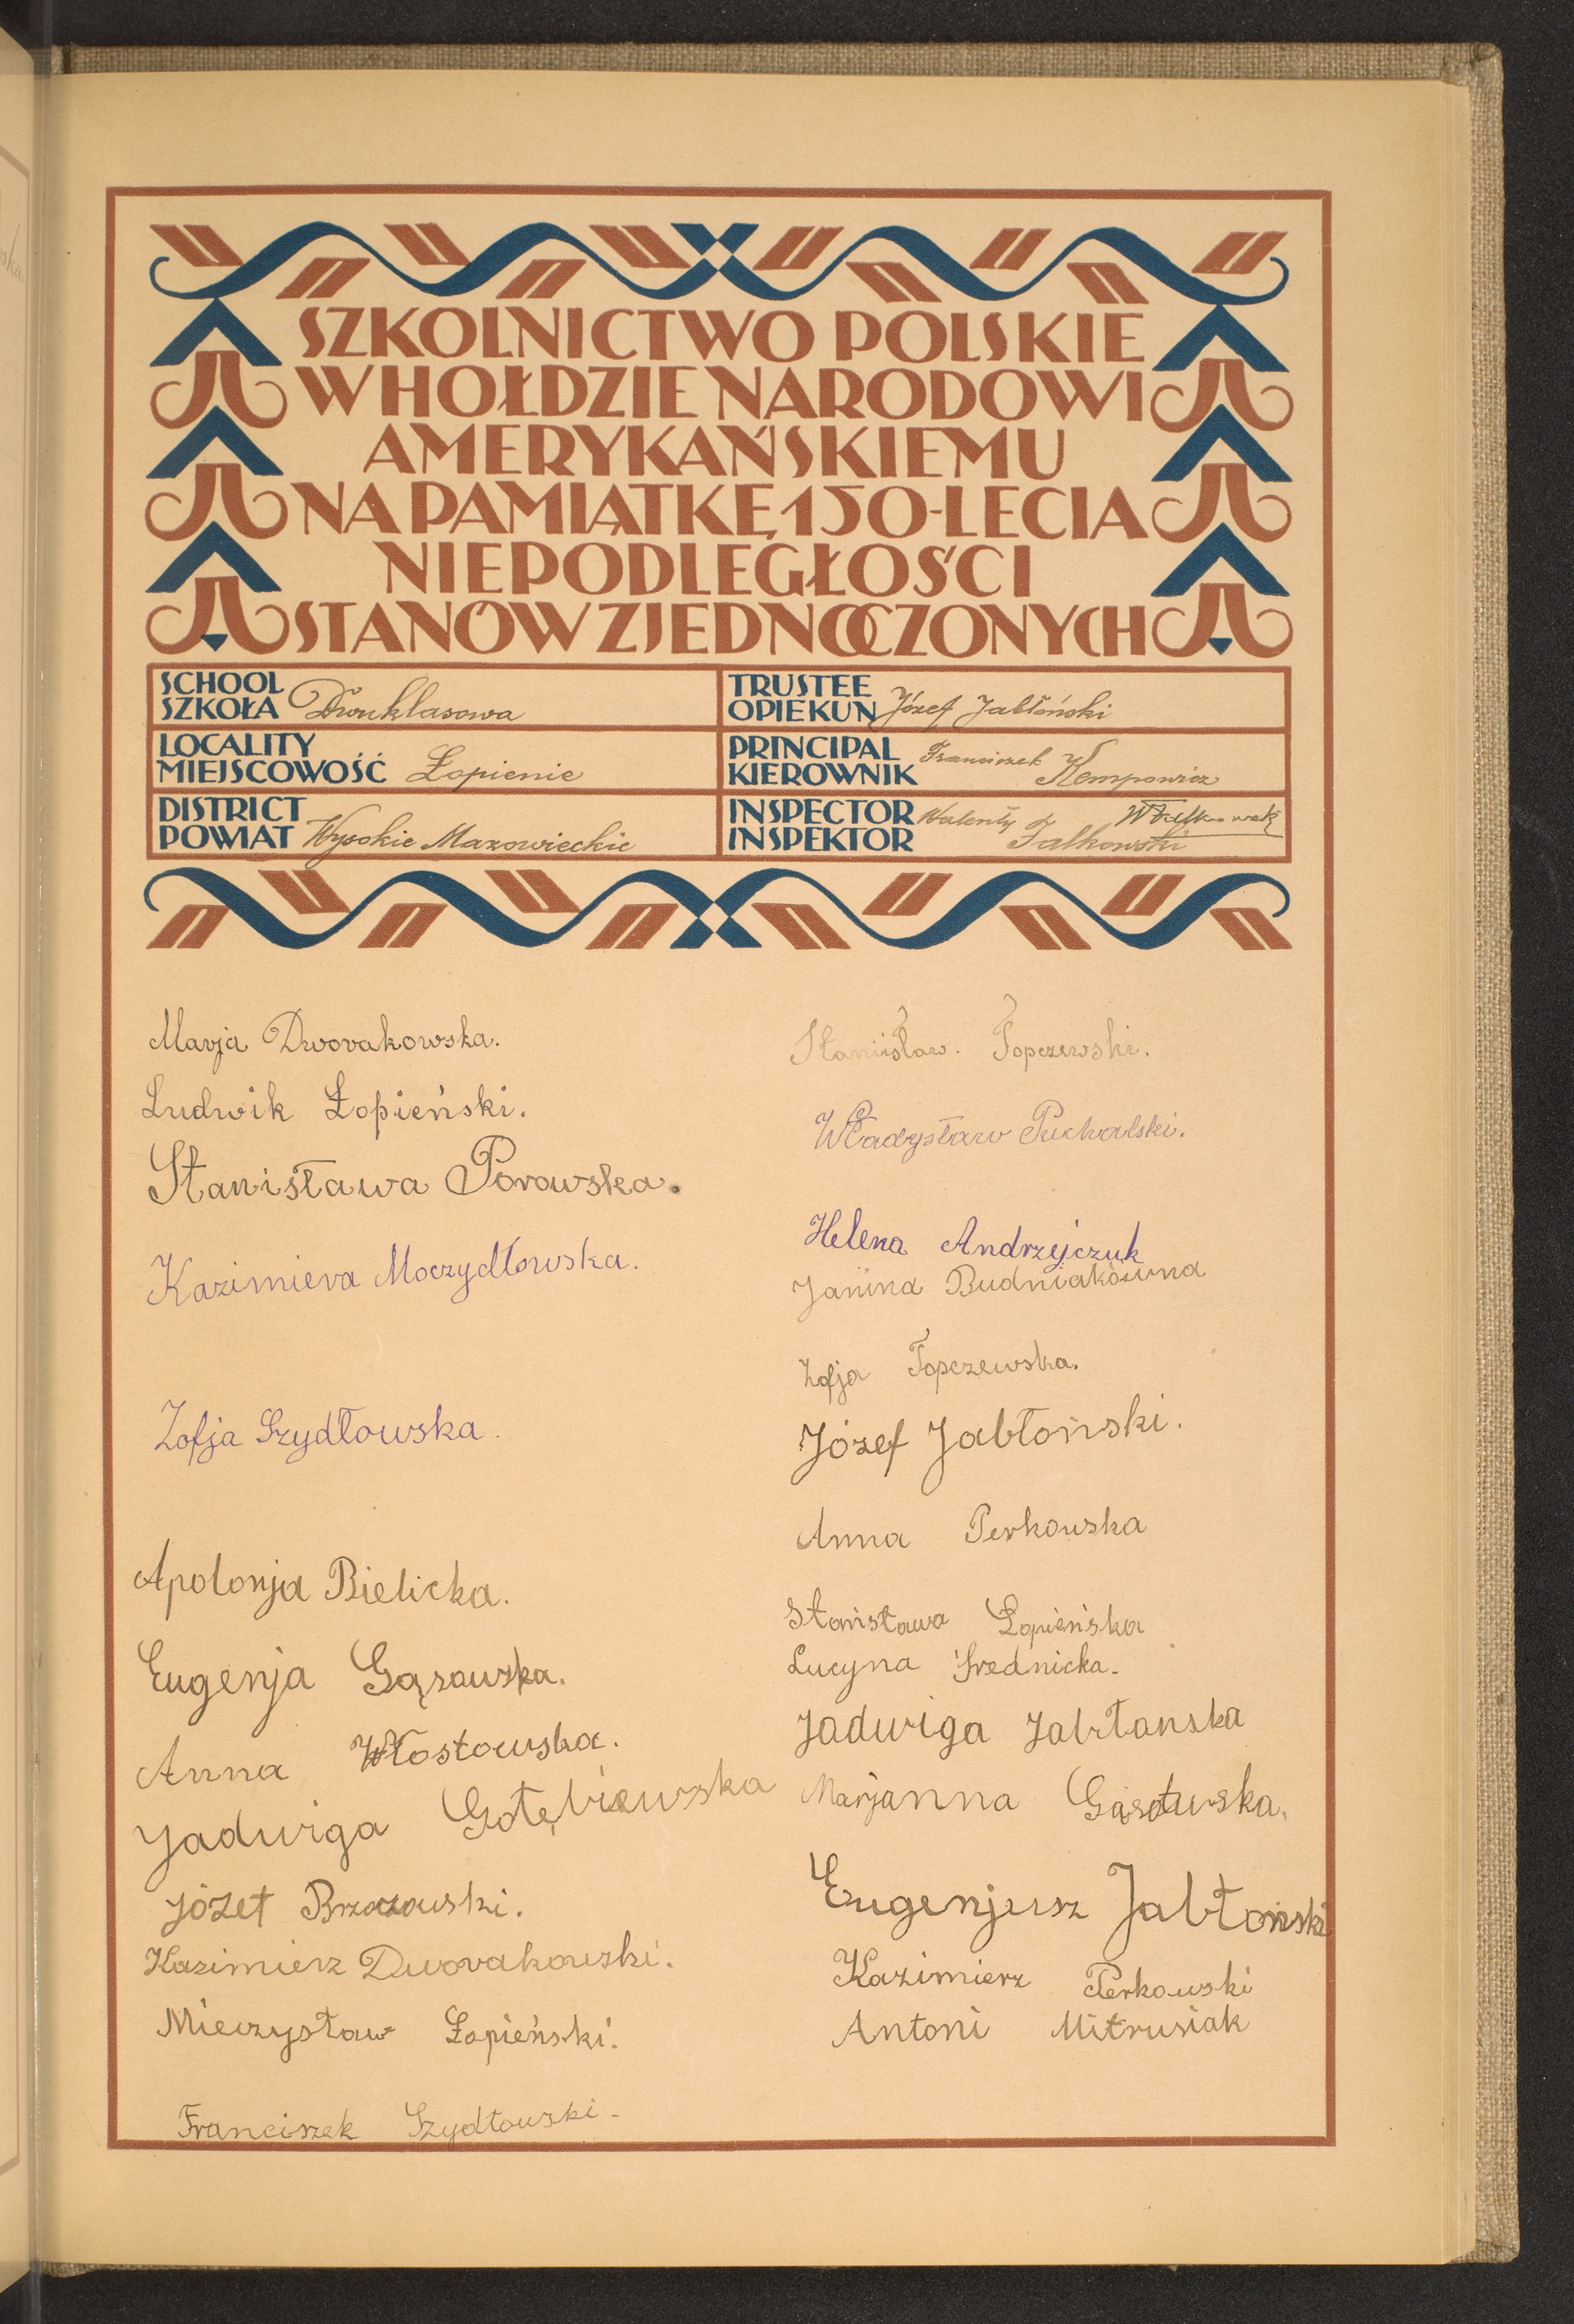 SZKOLNICTWO POLSKIE
W HOŁDZIE NARODOWI
AMERYKAŃSKIEMU
NA PAMIĄTKĘ 150-LECIA
NIEPODLEGŁOŚCI
STANÓW ZJEDNOCZONYCH
SCHOOL
SZKOŁA Dwuklasowa
TRUSTEE
OPIEKUN Józef Jabłoński
LOCALITY
MIEJSCOWOŚĆ Łopienie
PRINCIPAL
KIEROWNIK Franciszek Kempowicz
DISTRICT
POWIAT Wysokie Mazowieckie
INSPECTOR
INSPEKTOR Walenty Falkowski
Marja Dworakowska.
Ludwik Łopieński.
Stanisława Porowska.
Kazimiera Moczydłowska.
Zofja Szydłowska.
Apolonja Bielicka.
Eugenja Gąsowska.
Anna Włostowska.
Jadwiga Gołębiewska
Józef Brzozowski.
Kazimierz Dworakowski.
Mieczysław Łopieński.
Franciszek Szydłowski-
Stanisław. Topczewski.
Władysław Puchalski.
Helena Andrzejczuk
Janina Budniakówna
Zofja Topczewska.
Józef Jabłoński.
Anna Perkowska
Stanisława Łopieńska
Lucyna Średnicka.
Jadwiga Jabłanska
Marjanna Gąsowska.
Eugenjusz Jabłoński
Kazimierz Perkowski
Antoni Mitrusiak